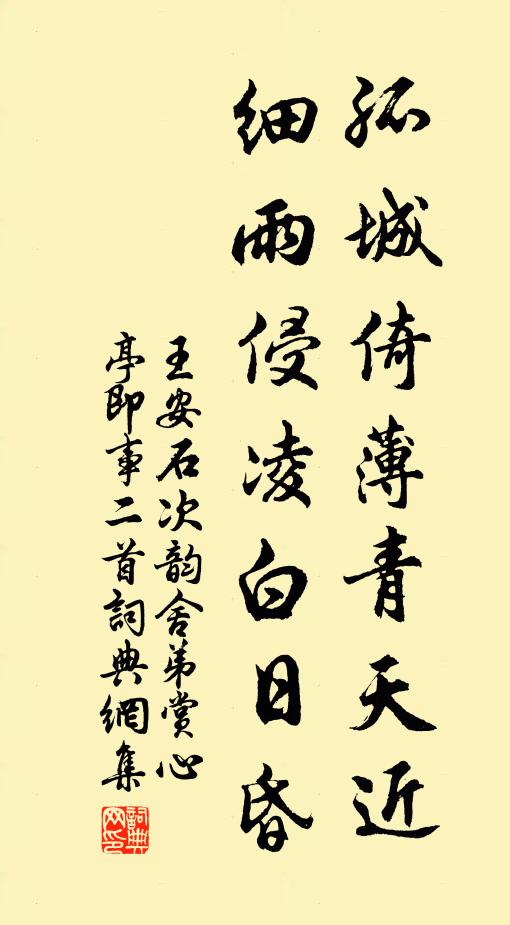 孤城倚薄青天近
細雨侵凌白日昏
王安石次韵舍弟赏心
亭即事二首詞典網集
詞典
网印